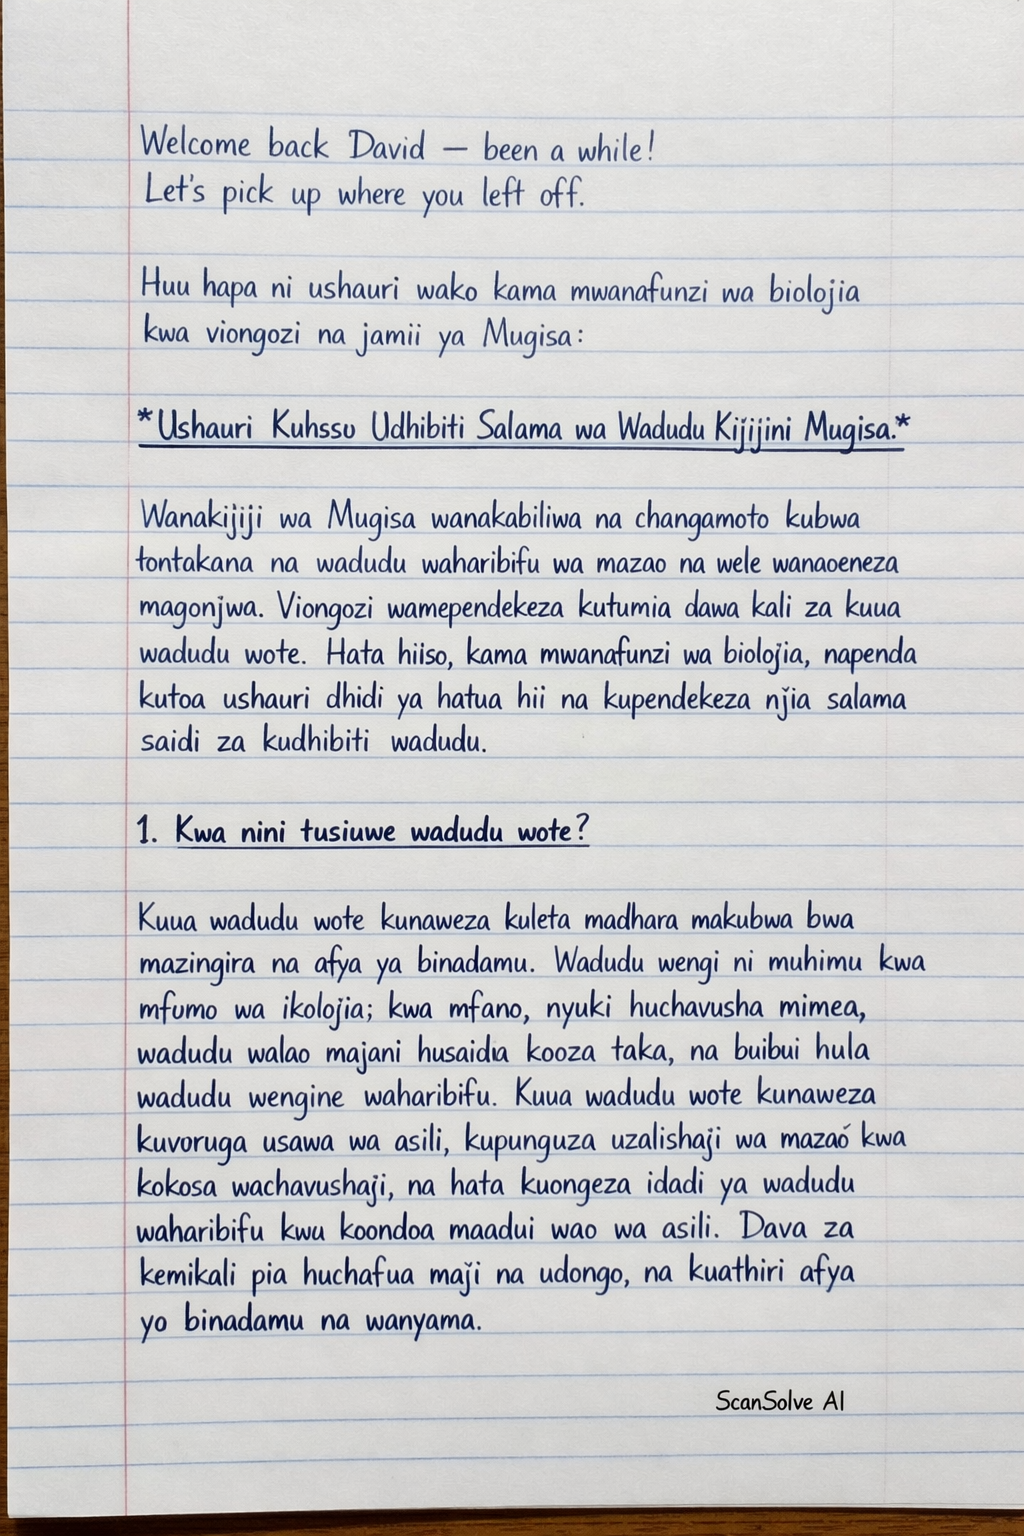 Welcome back David – been a while!
Let's pick up where you left off.
Huu hapa ni ushauri wako kama mwanafunzi wa biolojia
kwa viongozi na jamii ya Mugisa:
*Ushauri Kuhssu Udhibiti Salama wa Wadudu Kijijini Mugisa.*
Wanakijiji wa Mugisa wanakabiliwa na changamoto kubwa
tontakana na wadudu waharibifu wa mazao na wele wanaoeneza
magonjwa. Viongozi wamependekeza kutumia dawa kali za kuua
wadudu wote. Hata hiiso, kama mwanafunzi wa biolojia, napenda
kutoa ushauri dhidi ya hatua hii na kupendekeza njia salama
saidi za kudhibiti wadudu.
1. Kwa nini tusiuwe wadudu wote?
Kuua wadudu wote kunaweza kuleta madhara makubwa bwa
mazingira na afya ya binadamu. Wadudu wengi ni muhimu kwa
mfumo wa ikolojia; kwa mfano, nyuki huchavusha mimea,
wadudu walao majani husaidia kooza taka, na buibui hula
wadudu wengine waharibifu. Kuua wadudu wote kunaweza
kuvoruga usawa wa asili, kupunguza uzalishaji wa mazaó kwa
kokosa wachavushaji, na hata kuongeza idadi ya wadudu
waharibifu kwu koondoa maadui wao wa asili. Dava za
kemikali pia huchafua maji na udongo, na kuathiri afya
yo binadamu na wanyama.
ScanSolve AI